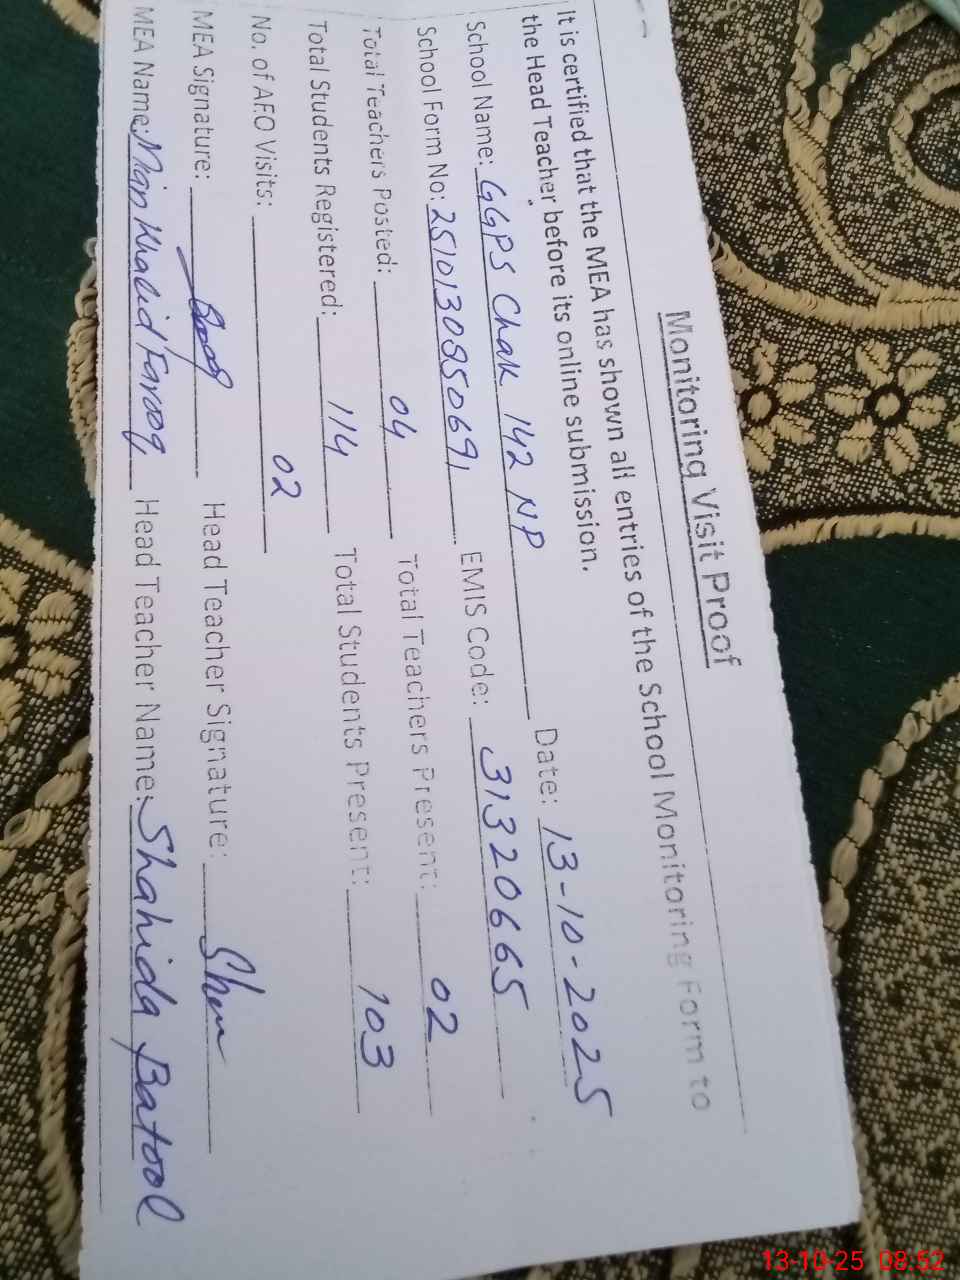 Monitoring Visit Proof
It is certified that the MEA has shown all entries of the School Monitoring Form to
the Head Teacher before its online submission.
School Name: GGPS Chak 142 NP Date: 13-10-2025
School Form No: 2510130850691 EMIS Code: 31320665
Total Teachers Posted: 04 Total Teachers Present: 02
Total Students Registered: 114 Total Students Present: 103
No. of AEO Visits: 02
MEA Signature: Head Teacher Signature:
MEA Name: Mian Khalid Farooq Head Teacher Name: Shahida Batool
13-10-25 08:52